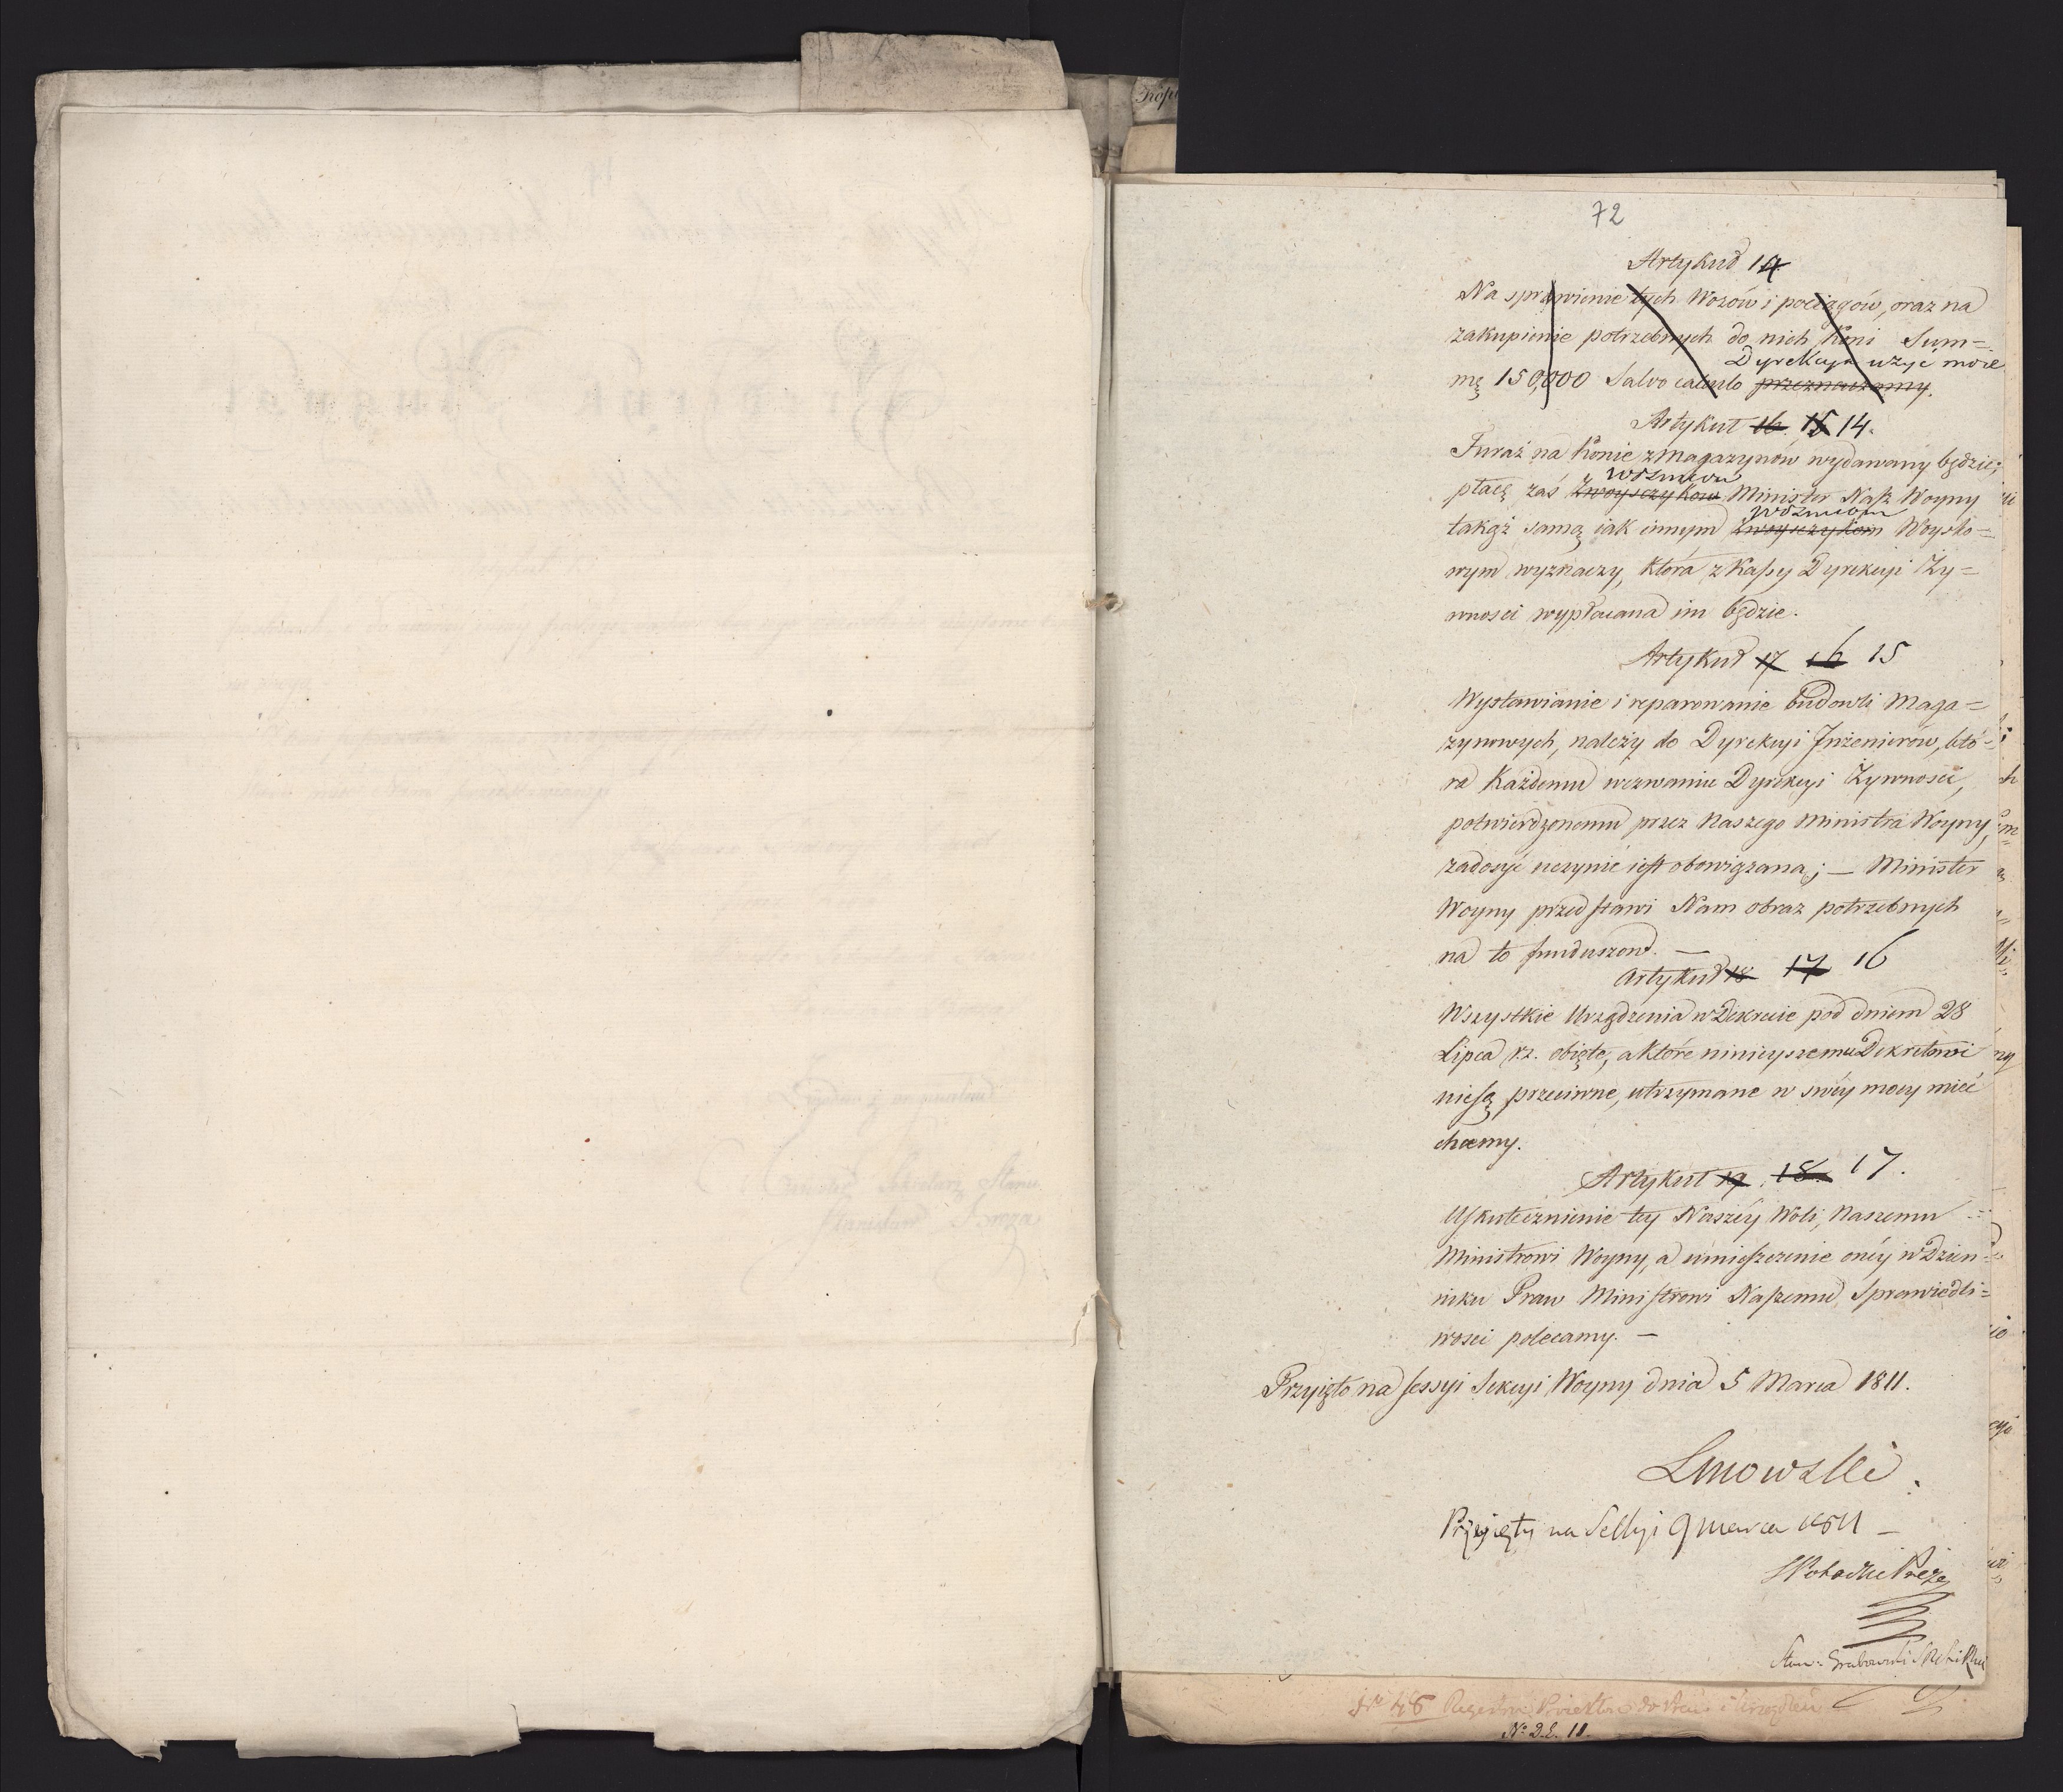 72
Artykuł 14.
Na sprawienie tych Wozów i pociągów, oraz na
zakupienie potrzebnych do nich Koni Sum=
Dyrekcya użyć może
mę 150,000 Salvo calculo przeznaczamy.
Artykuł 16. 15 14.
Furaż na konie z Magazynów wydawany będzie;
woźniców
płacę zaś Zwoysczyków Minister Nasz Woyny
woźnicom
takąż samą iak innym Zwoysczykom Woysko=
wym wyznaczy, która z Kassy Dyrekcyi Ży=
wnosci wypłacana im będzie.
Artykuł 17 16 15
Wystawianie i reparowanie budowli Maga=
zynowych, należy do Dyrekcyi Inżenierów, któ=
ra Każdemu wezwaniu Dyrekcyi Żywnosci,
potwierdzonemu przez Naszego Ministra Woyny,
zadosyć uczynić iest obowiązana; — Minister
Woyny przedstawi Nam obraz potrzebnych
na to funduszow. —
Artykuł 18 17 16
Wszystkie Urządzenia w Dekrecie pod dniem 28
Lipca r.z. obięte, a które ninieyszemu Dekretowi
niesą przeciwne, utrzymane w swéy mocy mieć
chcemy.
Artykuł 19. 18. 17.
Uskutecznienie tey Naszéy Woli, Naszemu
Ministrowi Woyny, a umieszczenie onéy w Dzien=
niku Praw Ministrowi Naszemu Sprawiedli=
wosci polecamy. —
Przyięto na sessyi Sekcyi Woyny dnia 5 Marca 1811.
Przyięty na Sessyi 9 marca 1811 —
Stan: Grabowski
Nr 48
No D.E. 11.